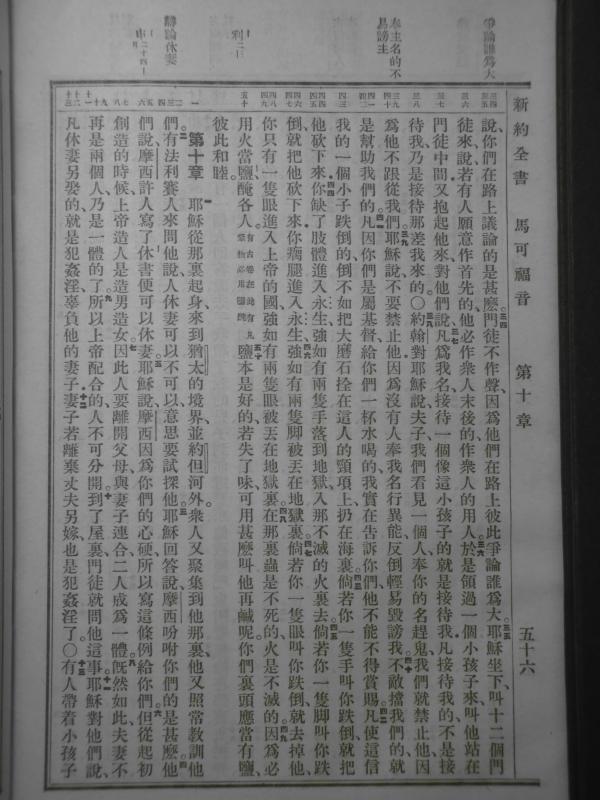 新約全書　馬可福音　第十章　五十六
爭論誰爲大
奉主名的不
易謗主
辯論休妻
說、你們在路上議論的是甚麽。門徒不作聲、因爲他們在路上彼此爭論誰爲大。耶穌坐下、叫十二個門
徒來、說、若有人願意作首先的、他必作衆人末後的、作衆人的用人。於是領過一個小孩子來、叫他站在
門徒中間、又抱起他來、對他們說、凡爲我名、接待一個像這小孩子的、就是接待我、凡接待我的、不是接
待我、乃是接待那差我來的。〇約翰對耶穌說、夫子、我們看見一個人、奉你的名趕鬼、我們就禁止他、因
爲他不跟從我們。耶穌說、不要禁止他、因爲沒有人奉我名行異能、反倒輕易毀謗我。不敵擋我們的、就
是幫助我們的。凡因你們是屬基督、給你們一杯水喝的、我實在告訴你們、他不能不得賞賜。凡使這信
我的一個小子跌倒的、倒不如把大磨石拴在這人的頸項上、扔在海裏。倘若你一隻手叫你跌倒、就把
他砍下來、你缺了肢體進入永生、強如有兩隻手落到地獄、入那不滅的火裏去。倘若你一隻脚叫你跌
倒、就把他砍下來、你瘸腿進入永生、強如有兩隻脚被丟在地獄裏。倘若你一隻眼叫你跌倒、就去掉他、
你只有一隻眼進入上帝的國、強如有兩隻眼被丟在地獄裏。在那裏蟲是不死的、火是不滅的。因爲必
用火當鹽醃各人。鹽本是好的、若失了味、可用甚麽叫他再鹹呢、你們裏頭應當有鹽、
彼此和睦。
第十章　耶穌從那裏起身、來到猶太的境界、並約但河外、衆人又聚集到他那裏、他又照常教訓他
們。有法利賽人來問他說、人休妻可以不可以、意思要試探他。耶穌回答說、摩西吩咐你們的是甚麽。他
們說、摩西許人寫了休書、便可以休妻。耶穌說、摩西因爲你們的心硬、所以寫這條例給你們。但從起初
創造的時候、上帝造人是造男造女。因此人要離開父母、與妻子連合、二人成爲一體。旣然如此、夫妻不
再是兩個人、乃是一體的了。所以上帝配合的、人不可分開。到了屋裏、門徒就問他這事。耶穌對他們說、
凡休妻另娶的、就是犯姦淫、辜負他的妻子。妻子若離棄丈夫另嫁、也是犯姦淫了。〇有人帶着小孩子